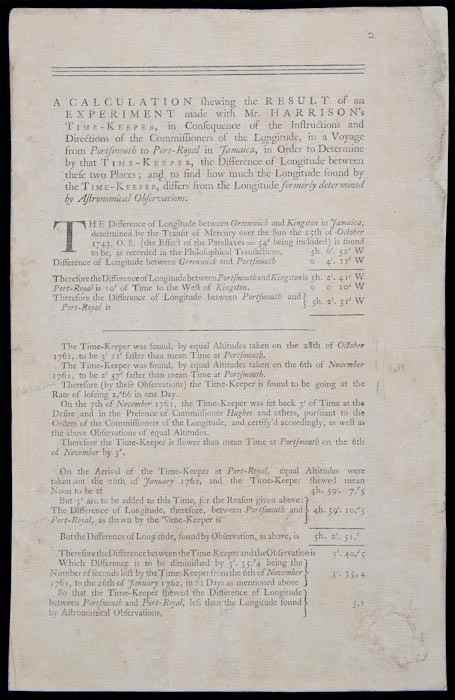 2
A CALCULATION shewing the RESULT of an
EXPERIMENT made with Mr. HARRISON's
TIME-KEEPER, in Consequence of the Instructions and
Directions of the Commissioners of the Longitude, in a Voyage
from Portsmouth to Port-Royal in Jamaica, in Order to Determine
by that TIME-KEEPER, the Difference of Longitude between
these two Places; and to find how much the Longitude found by
the TIME-KEEPER, differs from the Longitude formerly determined
by Astronomical Observations.
THE Difference of Longitude between Greenwich and Kingston in Jamaica,
determined by the Transit of Mercury over the Sun the 25th of October
1743. O. S. (the Effect of the Parallaxes = 54" being included) is found
to be, as recorded in the Philosophical Transactions, 5h. 6'. 52" W
Difference of Longitude between Greenwich and Portsmouth 0 4'. 11" W
Therefore the Difference of Longitude between Portsmouth and Kingston is 5h. 2'. 41" W
Port-Royal is 10" of Time to the West of Kingston. 0 0 10" W
Therefore the Difference of Longitude between Portsmouth and } 5h. 2'. 51" W
Port-Royal is
The Time-Keeper was found, by equal Altitudes taken on the 28th of October
1761, to be 3' 11" faster than mean Time at Portsmouth.
The Time-Keeper was found, by equal Altitudes taken on the 6th of November
1761, to be 2' 57" faster than mean Time at Portsmouth.
Therefore (by these Observations) the Time-Keeper is found to be going at the
Rate of losing 2."66 in one Day.
On the 7th of November 1761, the Time-Keeper was set back 3' of Time at the
Desire and in the Presence of Commissioner Hughes and others, pursuant to the
Orders of the Commissioners of the Longitude, and certify'd accordingly, as well as
the above Observations of equal Altitudes.
Therefore the Time-Keeper is slower than mean Time at Portsmouth on the 6th
of November by 3".
On the Arrival of the Time-Keeper at Port-Royal, equal Altitudes were
taken on the 26th of January 1762, and the Time-Keeper shewed mean
Noon to be at 4h. 59'. 7."5
But 3" are to be added to this Time, for the Reason given above:
The Difference of Longitude, therefore, between Portsmouth and } 4h. 59'. 10."5
Port-Royal, as shewn by the Time-Keeper is
But the Difference of Longitude, found by Observation, as above, is 5h. 2'. 51."
Therefore the Difference between the Time-Keeper and the Observation is 3'. 40."5
Which Difference is to be diminished by 3'. 35."4 being the
Number of seconds lost by the Time-Keeper from the 6th of November } 3'. 35,4
1761, to the 26th of January 1762, in 81 Days as mentioned above
So that the Time-Keeper shewed the Difference of Longitude
between Portsmouth and Port-Royal, less than the Longitude found } 5,1
by Astronomical Observations,